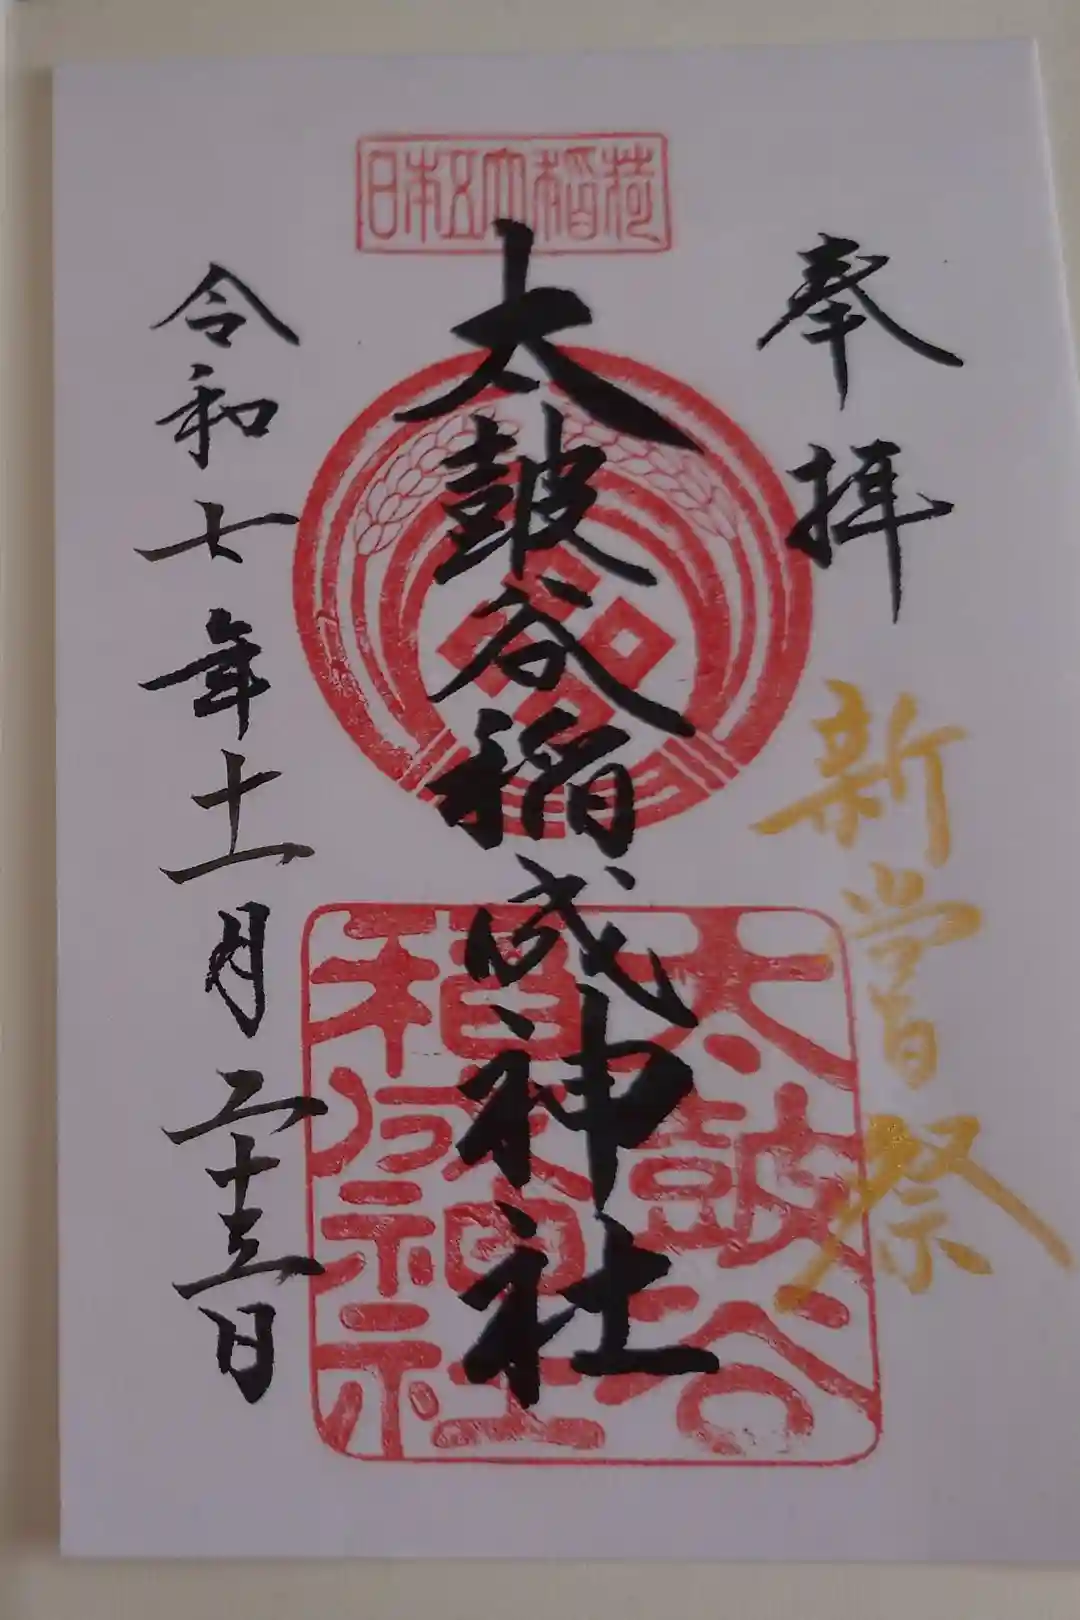 日本五大稲荷
奉拝
新嘗祭
太皷谷稲成神社
太皷谷稲成神社
令和七年十一月二十三日